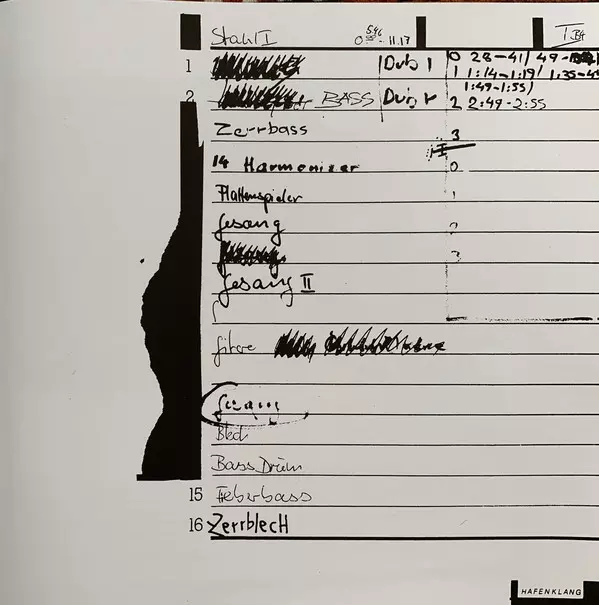 Stahl I 0 5.46 - 11.17
1 Dub 1 0 28-41/ 49-
1 1:14-1:19/ 1:35-4
1:49-1:55/
2 BASS Dub 2 2:49-2:55
Zerrbass 3
14 Harmonizer 0
Plattenspieler 1
Gesang 2
3
Gesang II
Gitarre
Gesang
Blech
Bass Drum
15 Fieberbass
16 ZerrblecH
HAFENKLANG